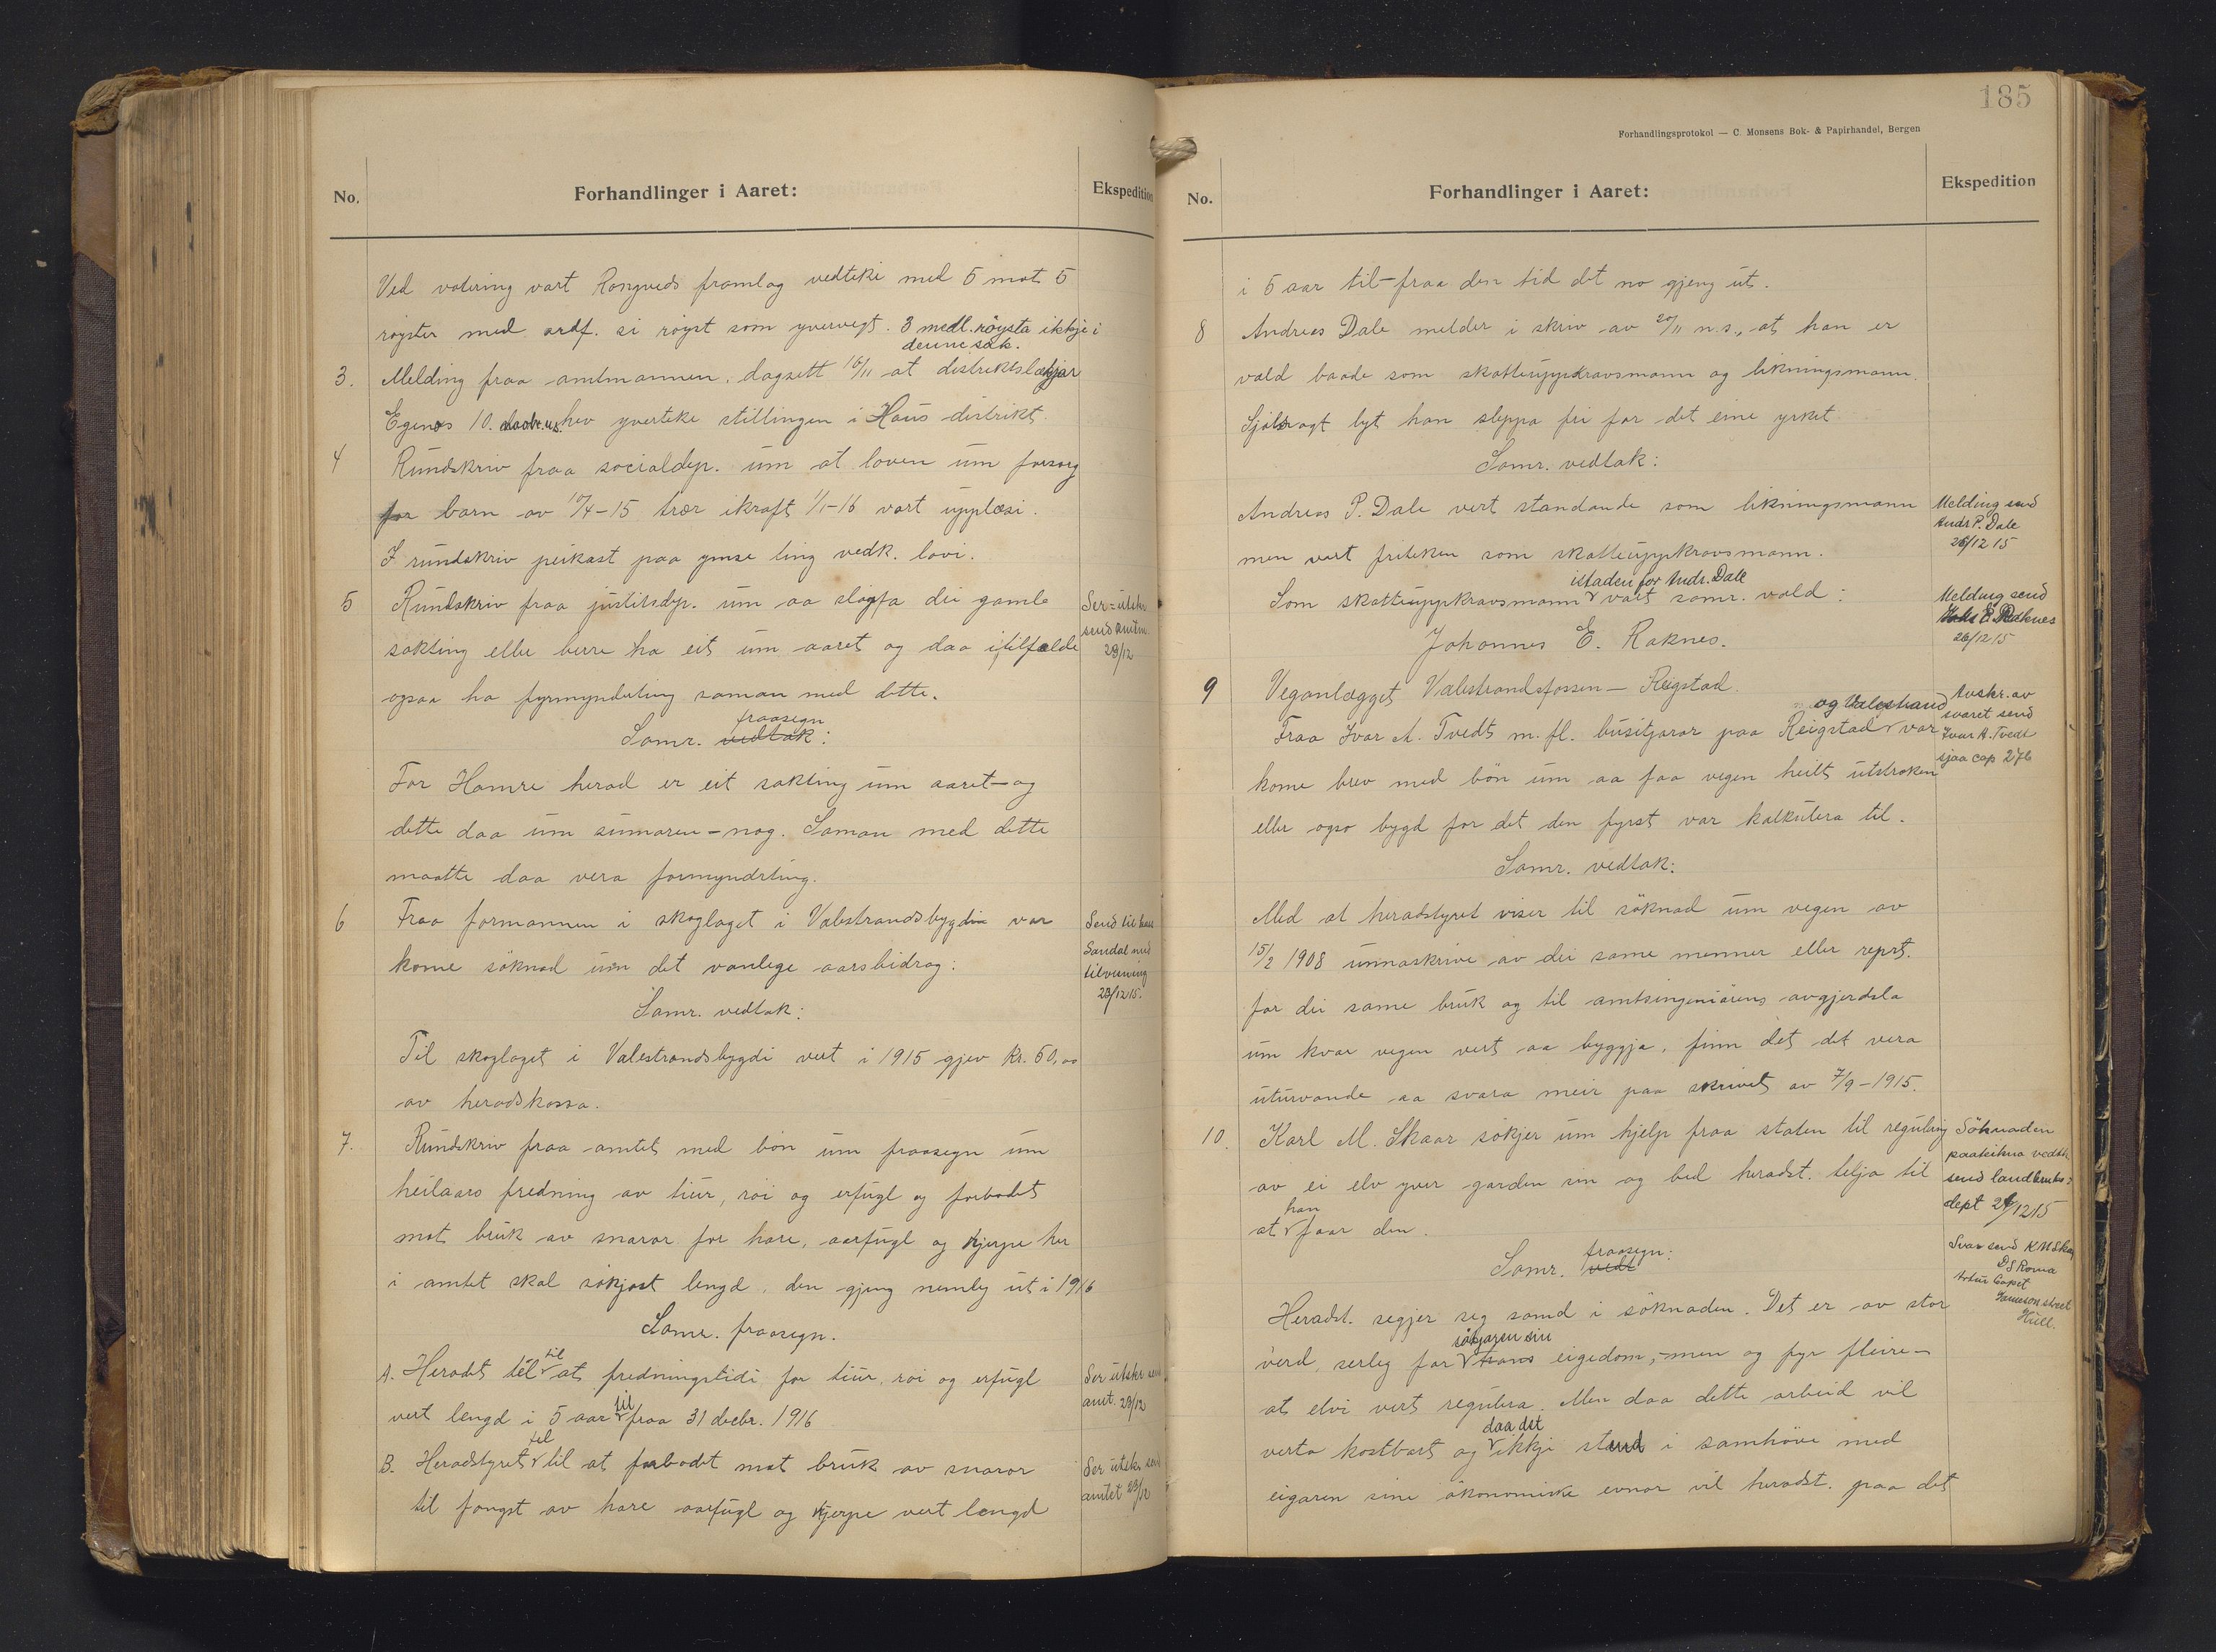 No.
Forhandlinger i Aaret:
Ekspedition
Ved votering vart Rongveds framlag vedteke med 5 mot 5
røyster med ordf. si røyst som yvervegt. 3 medl. röysta ikkje i
denne sak.
3. Melding fraa amtmannen, dagsett 16/11 at distriktslækjar
Egenes 10. hev yverteke stillingen i Haus distrikt.
4 Rundskriv fraa socialdep. um at loven um forsorg
for barn av 10/4-15 trær ikraft 1/1-16 vart upplæsi.
I rundskriv peikast paa ymse ting vedk. lovi.
5 Rundskriv fraa justitsdep. um aa sløyfa dei gamle
sakting eller berre ha eit um aaret og daa i tilfælde
ogsaa ha fyrmynderting saman med dette.
Samr. vedtak: fraasegn
For Hamre herad er eit sakting um aaret - og
dette daa um sumaren - nog. Saman med dette
maatte daa vera formynderting.
Ser-utskr.
send amtm.
23/12
6 Fraa formannen i skoglaget i Valestrandsbygdi var
kome söknad um det vanlege aarsbidrag:
Samr. vedtak:
Til skoglaget i Valestrandsbygdi vert i 1915 gjev kr. 50,00
av heradskassa.
Send til
Sandal med
tilvisning
23/12 15.
7. Rundskriv fraa amtet med bön um fraasegn um
heilaars fredning av tiur, röi og erfugl og forbodet
mot bruk av snaror for hare, aarfugl og hjerpe her
i amtet skal søkjast lengd, den gjeng nemleg ut i 1916
Samr. fraasegn.
A. Heradst. tel til at fredningstidi for tiur, röi og erfugl
vert lengd i 5 aar til fraa 31 decbr. 1916
B. Heradstyret tel til at forbodet mot bruk av snaror
til fangst av hare aarfugl og hjerpe vert lengd
Ser utskr. send
amt. 23/12
Ser utskr. send
amtet 23/12
185
Forhandlingsprotokol — C. Monsens Bok- & Papirhandel, Bergen
No.
Forhandlinger i Aaret:
Ekspedition
i 5 aar til - fraa den tid det no gjeng ut.
8 Andreas Dale melder i skriv av 20/11 n.s., at han er
vald baade som skatteuppkravsmann og likningsmann.
Sjølvsagt lyt han sleppa fri for det eine yrket.
Samr. vedtak:
Andreas P. Dale vert standande som likningsmann
men vart friteken som skatteuppkravsmann.
istaden for Andr. Dale
Som skatteuppkravsmann vart samr. vald:
Johannes E. Raknes.
Melding send
Andr P. Dale
23/12 15
Melding send
Johs E. Raknes
23/12 15
9 Veganlegget Valestrandsfossen - Reigstad.
og Valestrand
Fraa Ivar A. Tvedt m. fl. busitjarar paa Reigstad var
kome brev med bön um aa faa vegen heilt utstroken
eller ogso bygd for det den fyrst var kalkulera til.
Samr. vedtak:
Med at heradstyret viser til söknad um vegen av
15/2 1908 unnaskrive av dei same menner eller reprs.
for dei same bruk og til amtsingeniörens avgjerdsla
um kvar vegen vert aa byggja, finn det det vera
uturvande aa svara meir paa skrivet av 7/9-1915.
Avskr. av
svaret send
Ivar A. Tvedt
sjaa cap 276
10. Karl M. Skaar sökjer um hjelp fraa staten til regulering
av ei elv yver garden sin og bed heradst. telja til
at han faar den.
Samr. vedt fraasegn:
Heradst. segjer seg samd i söknaden. Det er av stor
verd, serleg for hans sökjaren sin eigedom, - men og fyr fleire -
at elvi vert regulera. Men daa dette arbeid vil
verta kostbart og daa det ikkje stend i samhöve med
eigaren sine ökonomiske evnor vil heradst. paa det
Söknaden
paateikna vedtk
send landbruks-
dept 24/12 15
Svar send K M Skaar
D S Roma
Jameson street
Hull.